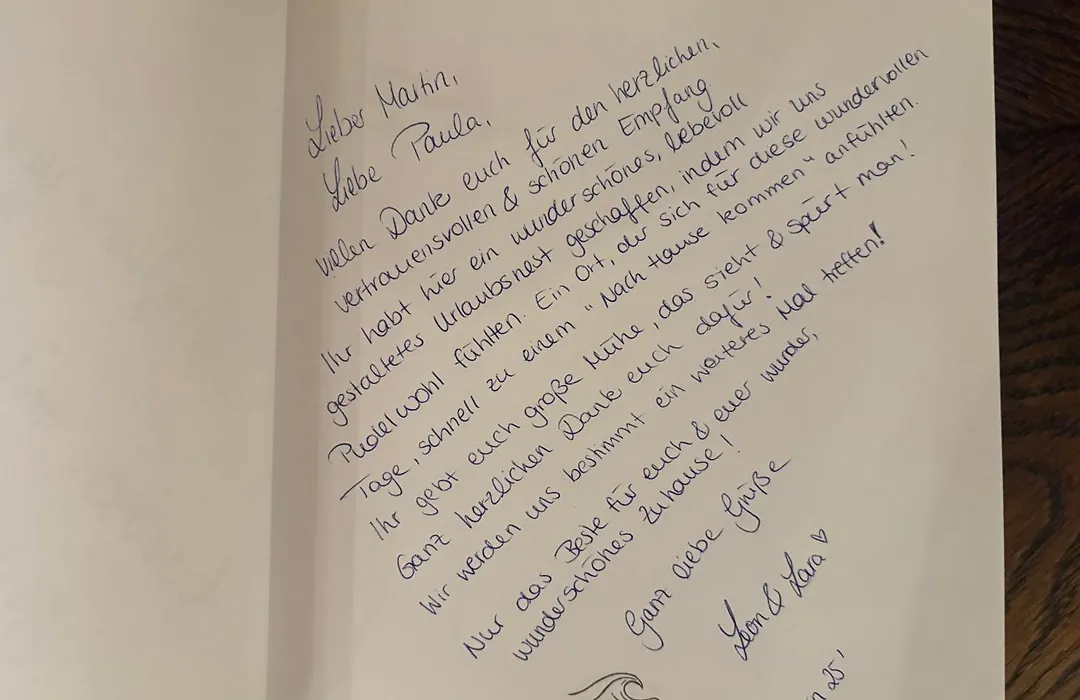 Lieber Martin,
Liebe Paula,
vielen Dank euch für den herzlichen,
vertrauensvollen & schönen Empfang
Ihr habt hier ein wunderschönes, liebevoll
gestaltetes Urlaubsnest geschaffen, indem wir uns
Pudelwohl fühlten. Ein Ort, der sich für diese wundervollen
Tage, schnell zu einem "Nach Hause kommen" anfühlten.
Ihr gebt euch große Mühe, das sieht & spürt man!
Ganz herzlichen Dank euch dafür!
Wir werden uns bestimmt ein weiteres Mal treffen!
Nur das Beste für euch & euer wunder,
wunderschönes Zuhause!
Ganz liebe Grüße
Leon & Lara ♡
25'